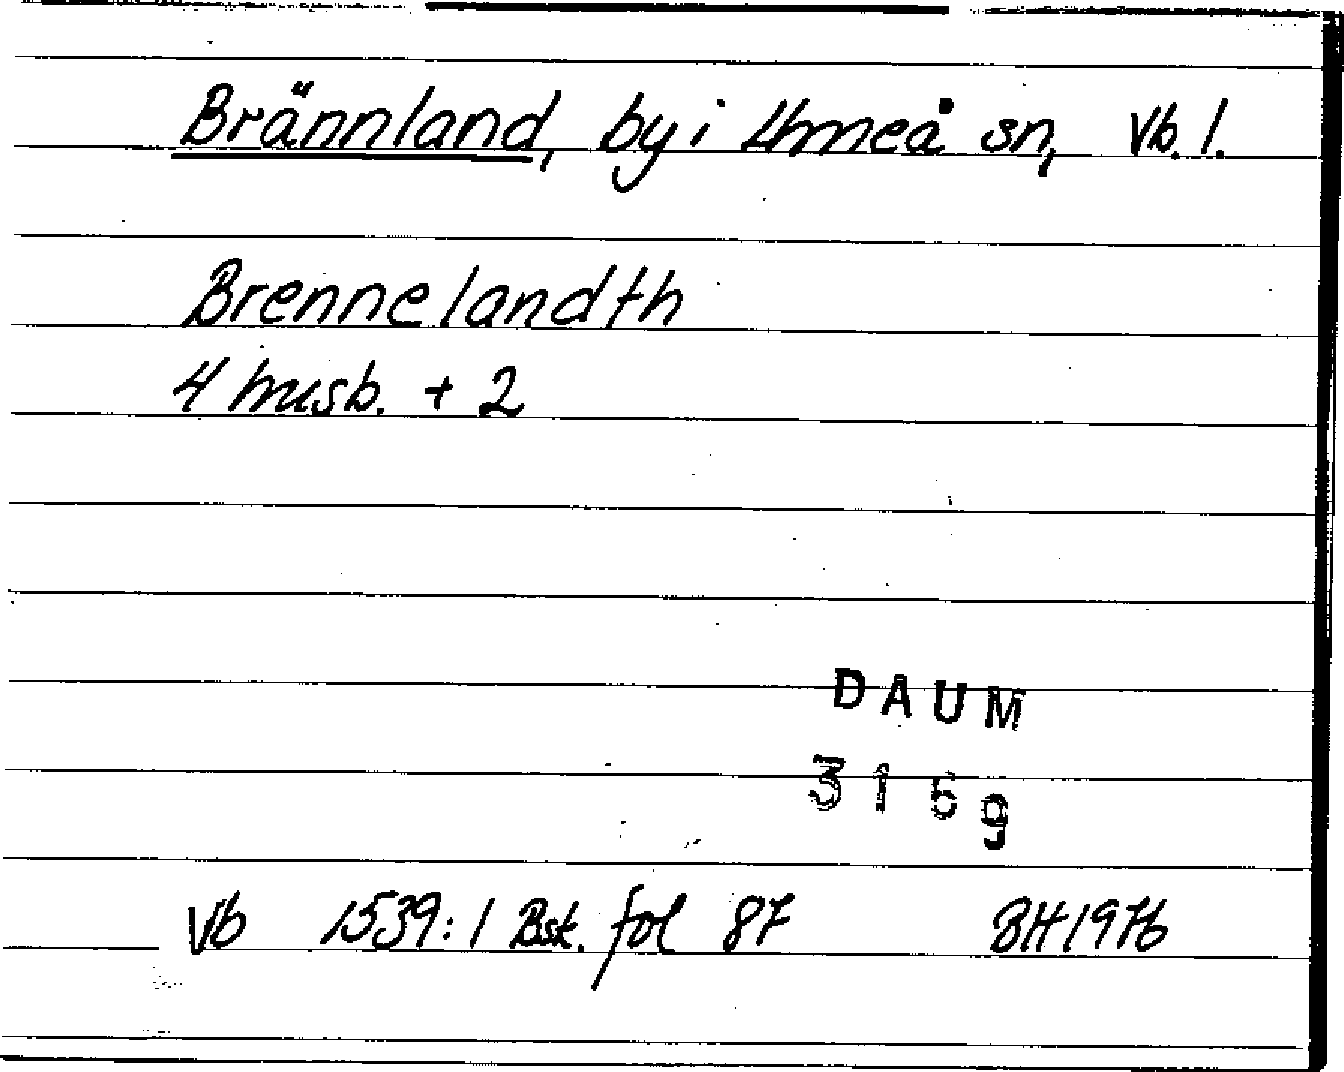 Brännland, by i Umeå sn, Vb. l.
Brennelandth
4 husb. + 2
DAUM
3159
Vb 1539:1 Bsk. fol 87 BH1976